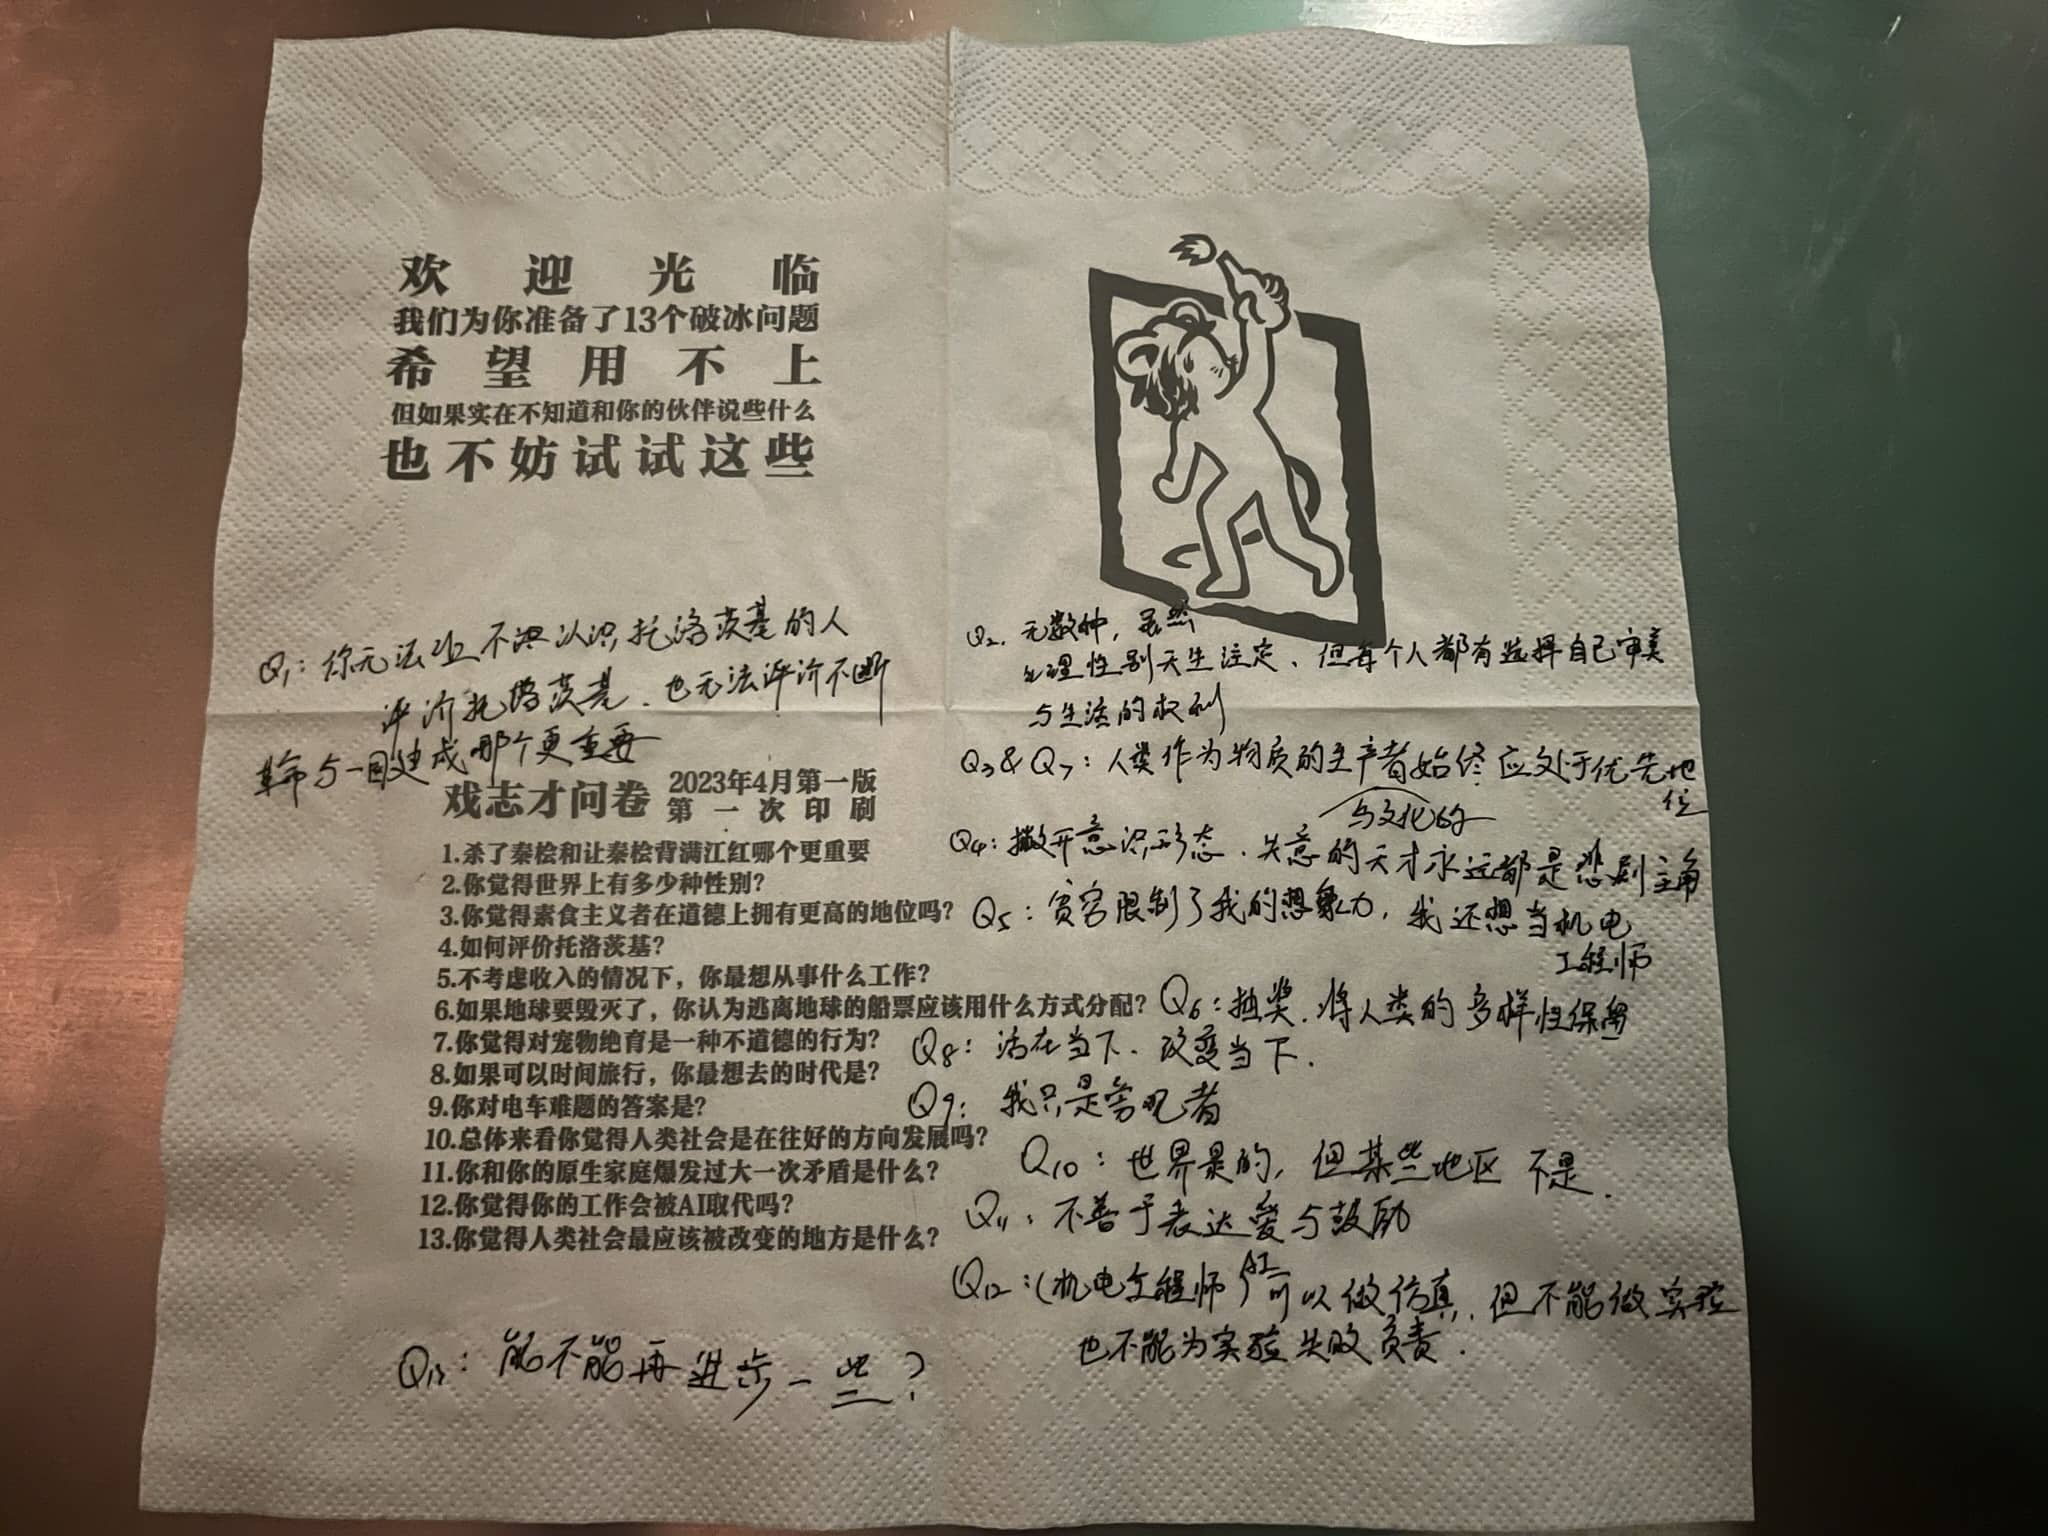 欢迎光临
我们为你准备了13个破冰问题
希望用不上
但如果实在不知道和你的伙伴说些什么
也不妨试试这些
Q1：你无法让不认识托洛茨基的人
评价托洛茨基、也无法评价不断
革命与一国建成哪个更重要
戏志才问卷 2023年4月第一版
第一次印刷
1.杀了秦桧和让秦桧背满江红哪个更重要
2.你觉得世界上有多少种性别？
3.你觉得素食主义者在道德上拥有更高的地位吗？
4.如何评价托洛茨基？
5.不考虑收入的情况下，你最想从事什么工作？
6.如果地球要毁灭了，你认为逃离地球的船票应该用什么方式分配？
7.你觉得对宠物绝育是一种不道德的行为？
8.如果可以时间旅行，你最想去的时代是？
9.你对电车难题的答案是？
10.总体来看你觉得人类社会是在往好的方向发展吗？
11.你和你的原生家庭爆发过大一次矛盾是什么？
12.你觉得你的工作会被AI取代吗？
13.你觉得人类社会最应该被改变的地方是什么？
Q2. 无数种，虽然
生理性别天生注定、但每个人都有选择自己审美
与生活的权利
Q3&Q7：人类作为物质的生产者始终应处于优先地
位
与文化的
Q4：撇开意识形态、失意的天才永远都是悲剧主角
Q5：贫穷限制了我的想象力，我还想当机电
工程师
Q6：抽奖、将人类的多样性保留
Q8：活在当下、改变当下.
Q9：我只是旁观者
Q10：世界是的，但某些地区不是.
Q11：不善于表达爱与鼓励
Q12：(机电工程师)AI可以做仿真，但不能做实验
也不能为实验失败负责.
Q13：能不能再进步一些？